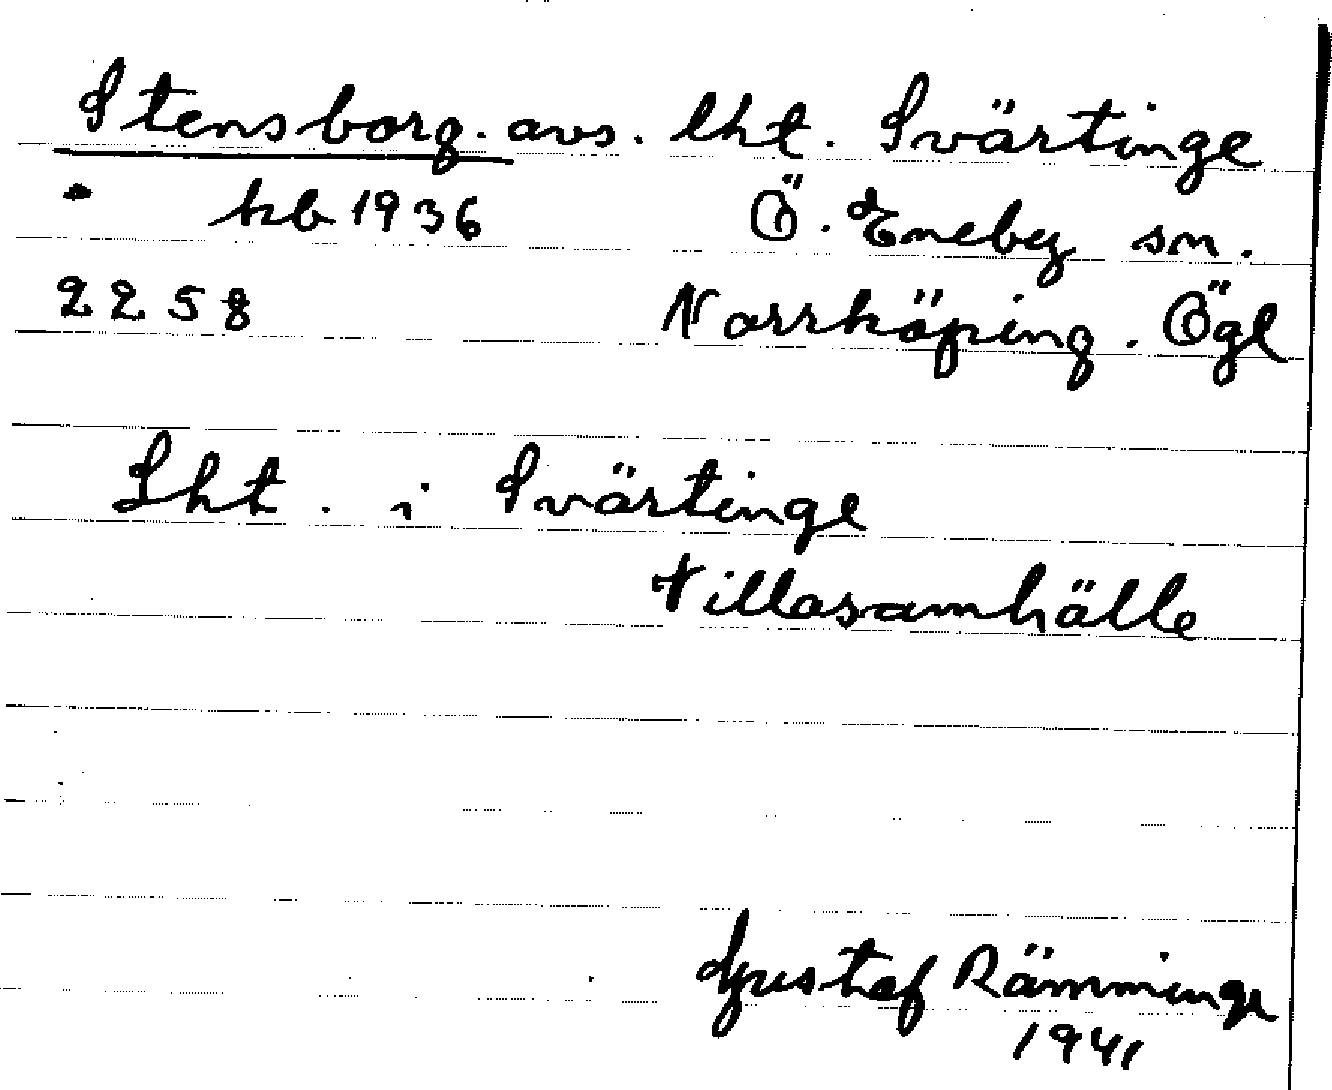 Stensborg. avs. lht. Svärtinge
kb 1936 Ö. Eneby sn.
2258 Norrköping. Ögl
Lht. i Svärtinge
Villasamhälle
Gustaf Rämminge
1941